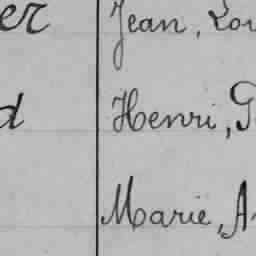 er Jean, Lou
d Henri, G
Marie, A